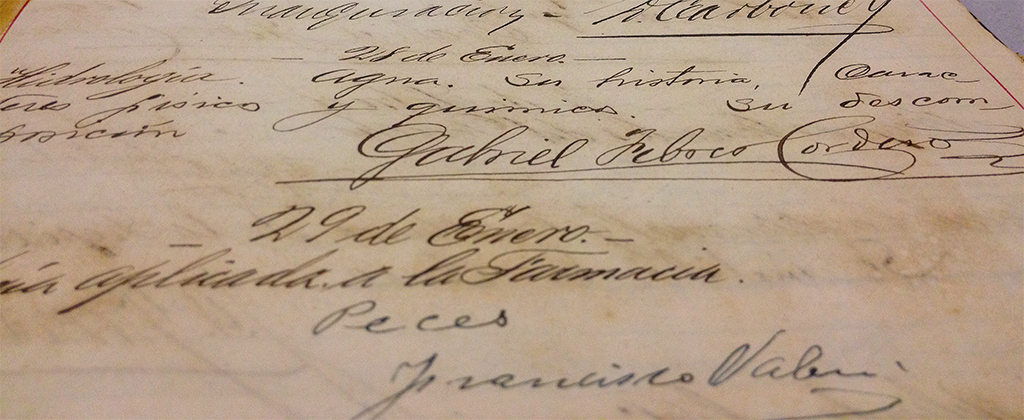 Inauguración -
28 de Enero. -
Hidrología. Agua. Su historia, Carac
teres físico y químico. Su descom
posición
Gabriel Cordero
- 29 de Enero. -
aplicada a la Farmacia.
Peces
Francisco